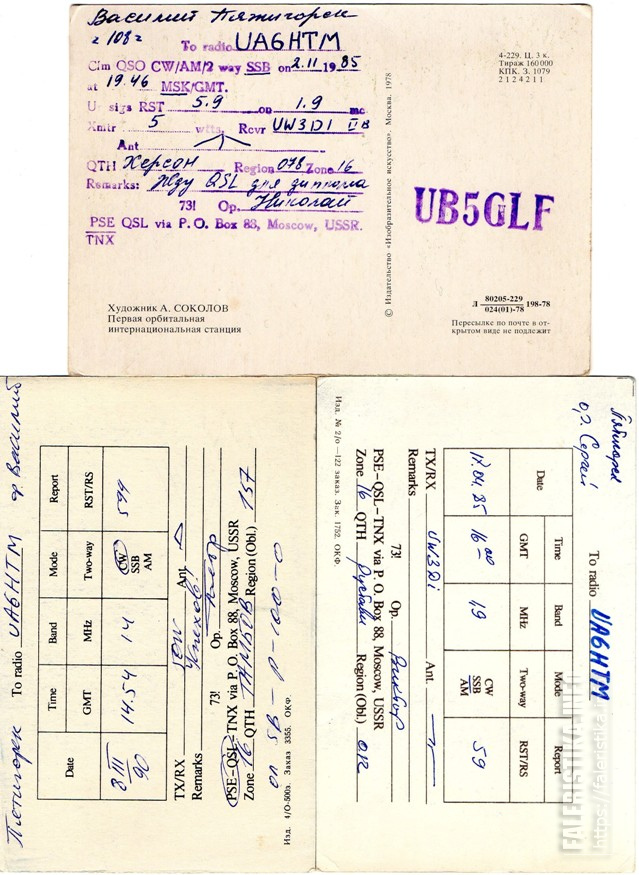 Василий Пяжигорск
г 108 г
To radio UA6HTM
Cfm QSO CW/AM/2 way SSB on 2.11 1985
at 19.46 MSK/GMT.
Ur sigs RST 5.9 on 1.9 mc
Xmtr 5 wtts. Rcvr UW3DI II в
Ant
QTH Херсон Region 078 Zone 16
Remarks: Жду QSL для диплома
73! Op. Николай
PSE QSL via P. O. Box 88, Moscow, USSR.
TNX
Художник А. СОКОЛОВ
Первая орбитальная
интернациональная станция
© Издательство «Изобразительное искусство». Москва. 1978
4-229. Ц. 3 к.
Тираж 160 000
КПК. З. 1079
2 1 2 4 2 1 1
UB5GLF
Л 80205-229 198-78
024(01)-78
Пересылке по почте в от-
крытом виде не подлежит
To radio UA6HTM ор Василий
Date Time Band Mode Report
GMT MHz Two-way RST/RS
2 III 90 14.54 14 CW SSB AM 599
TX/RX Ant. Δ
Remarks Успехов!
73! Op.
PSE-QSL-TNX via P. O. Box 88, Moscow, USSR
Zone 16 QTH ТАМБОВ Region (Obl.) 157
оп SB-P-100-0
Изд. 4/О-500з. Заказ 3355. ОКФ.
Пятигорск
ор. Сергей
To radio UA6HTM
Date Time Band Mode Report
GMT MHz Two-way RST/RS
17.04.85 16 00 19 CW SSB AM 59
TX/RX UW3Di Ant.
Remarks
73! Op. Виктор
PSE-QSL-TNX via P. O. Box 88, Moscow, USSR
Zone 16 QTH Рустави Region (Obl.) 012
Изд. № 2/о—122 заказ. Зак. 1752. ОКФ.
FALERISTIKA.INFO
https://faleristika.info